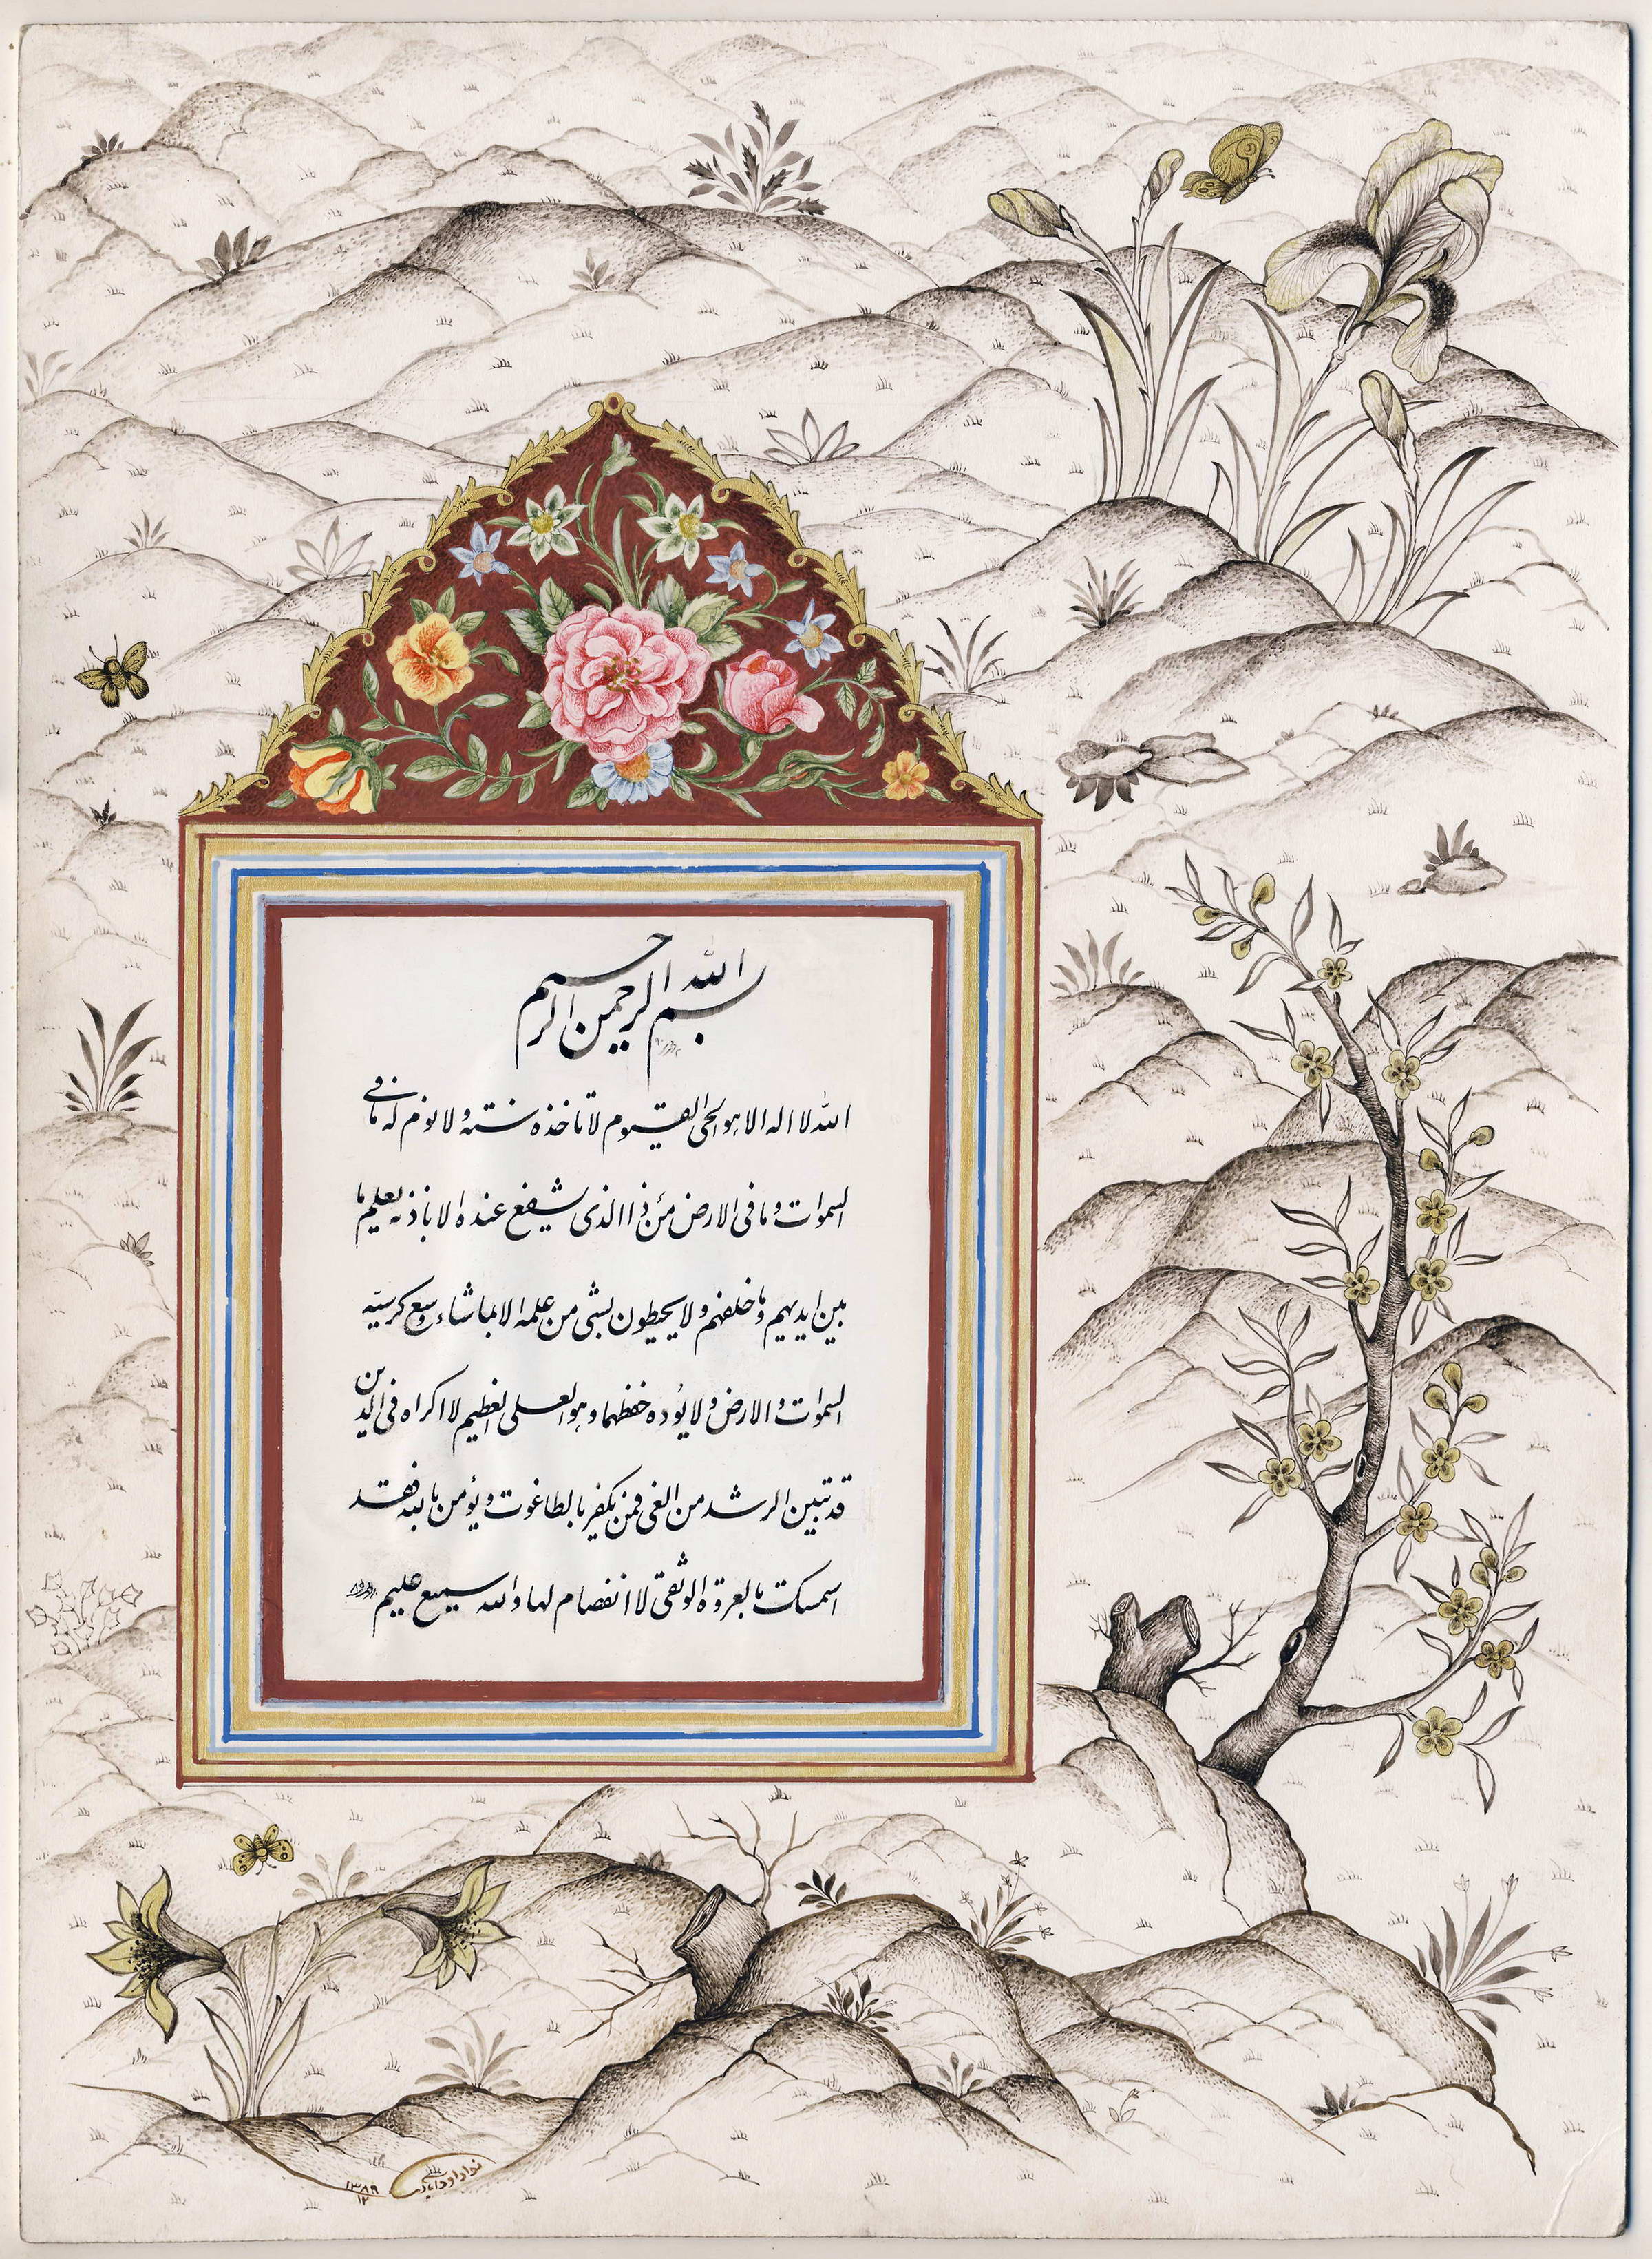 بسم الله الرحمن الرحیم
الله لا اله الا هو الحی القیوم لا تاخذه سنته و لا نوم له ما فی
السموات و ما فی الارض من ذا الذی یشفع عنده الا باذنه یعلم ما
بین ایدیهم و ما خلفهم و لا یحیطون بشی من علمه الا بما شاء وسع کرسیه
السموات و الارض و لا یؤده حفظهما و هو العلی العظیم لا اکراه فی الدین
قد تبین الرشد من الغی فمن یکفر بالطاغوت و یؤمن بالله فقد
اسمسک بالعروة الوثقی لا انفصام لها و الله سمیع علیم
۱۳۸۹
۱۲